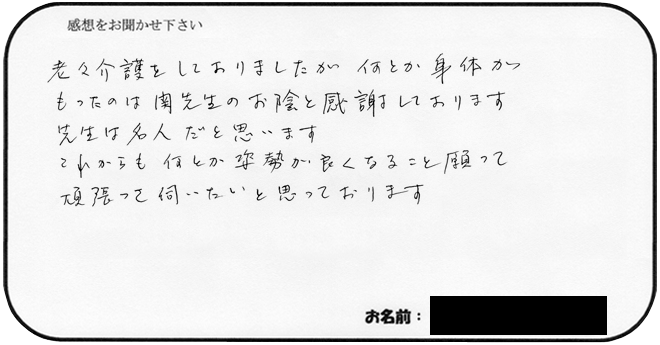 感想をお聞かせ下さい
老々介護をしておりましたが 何とか身体が
もったのは関先生のお陰と感謝しております
先生は名人だと思います
これからも何とか姿勢が良くなること願って
頑張って伺いたいと思っております
お名前：